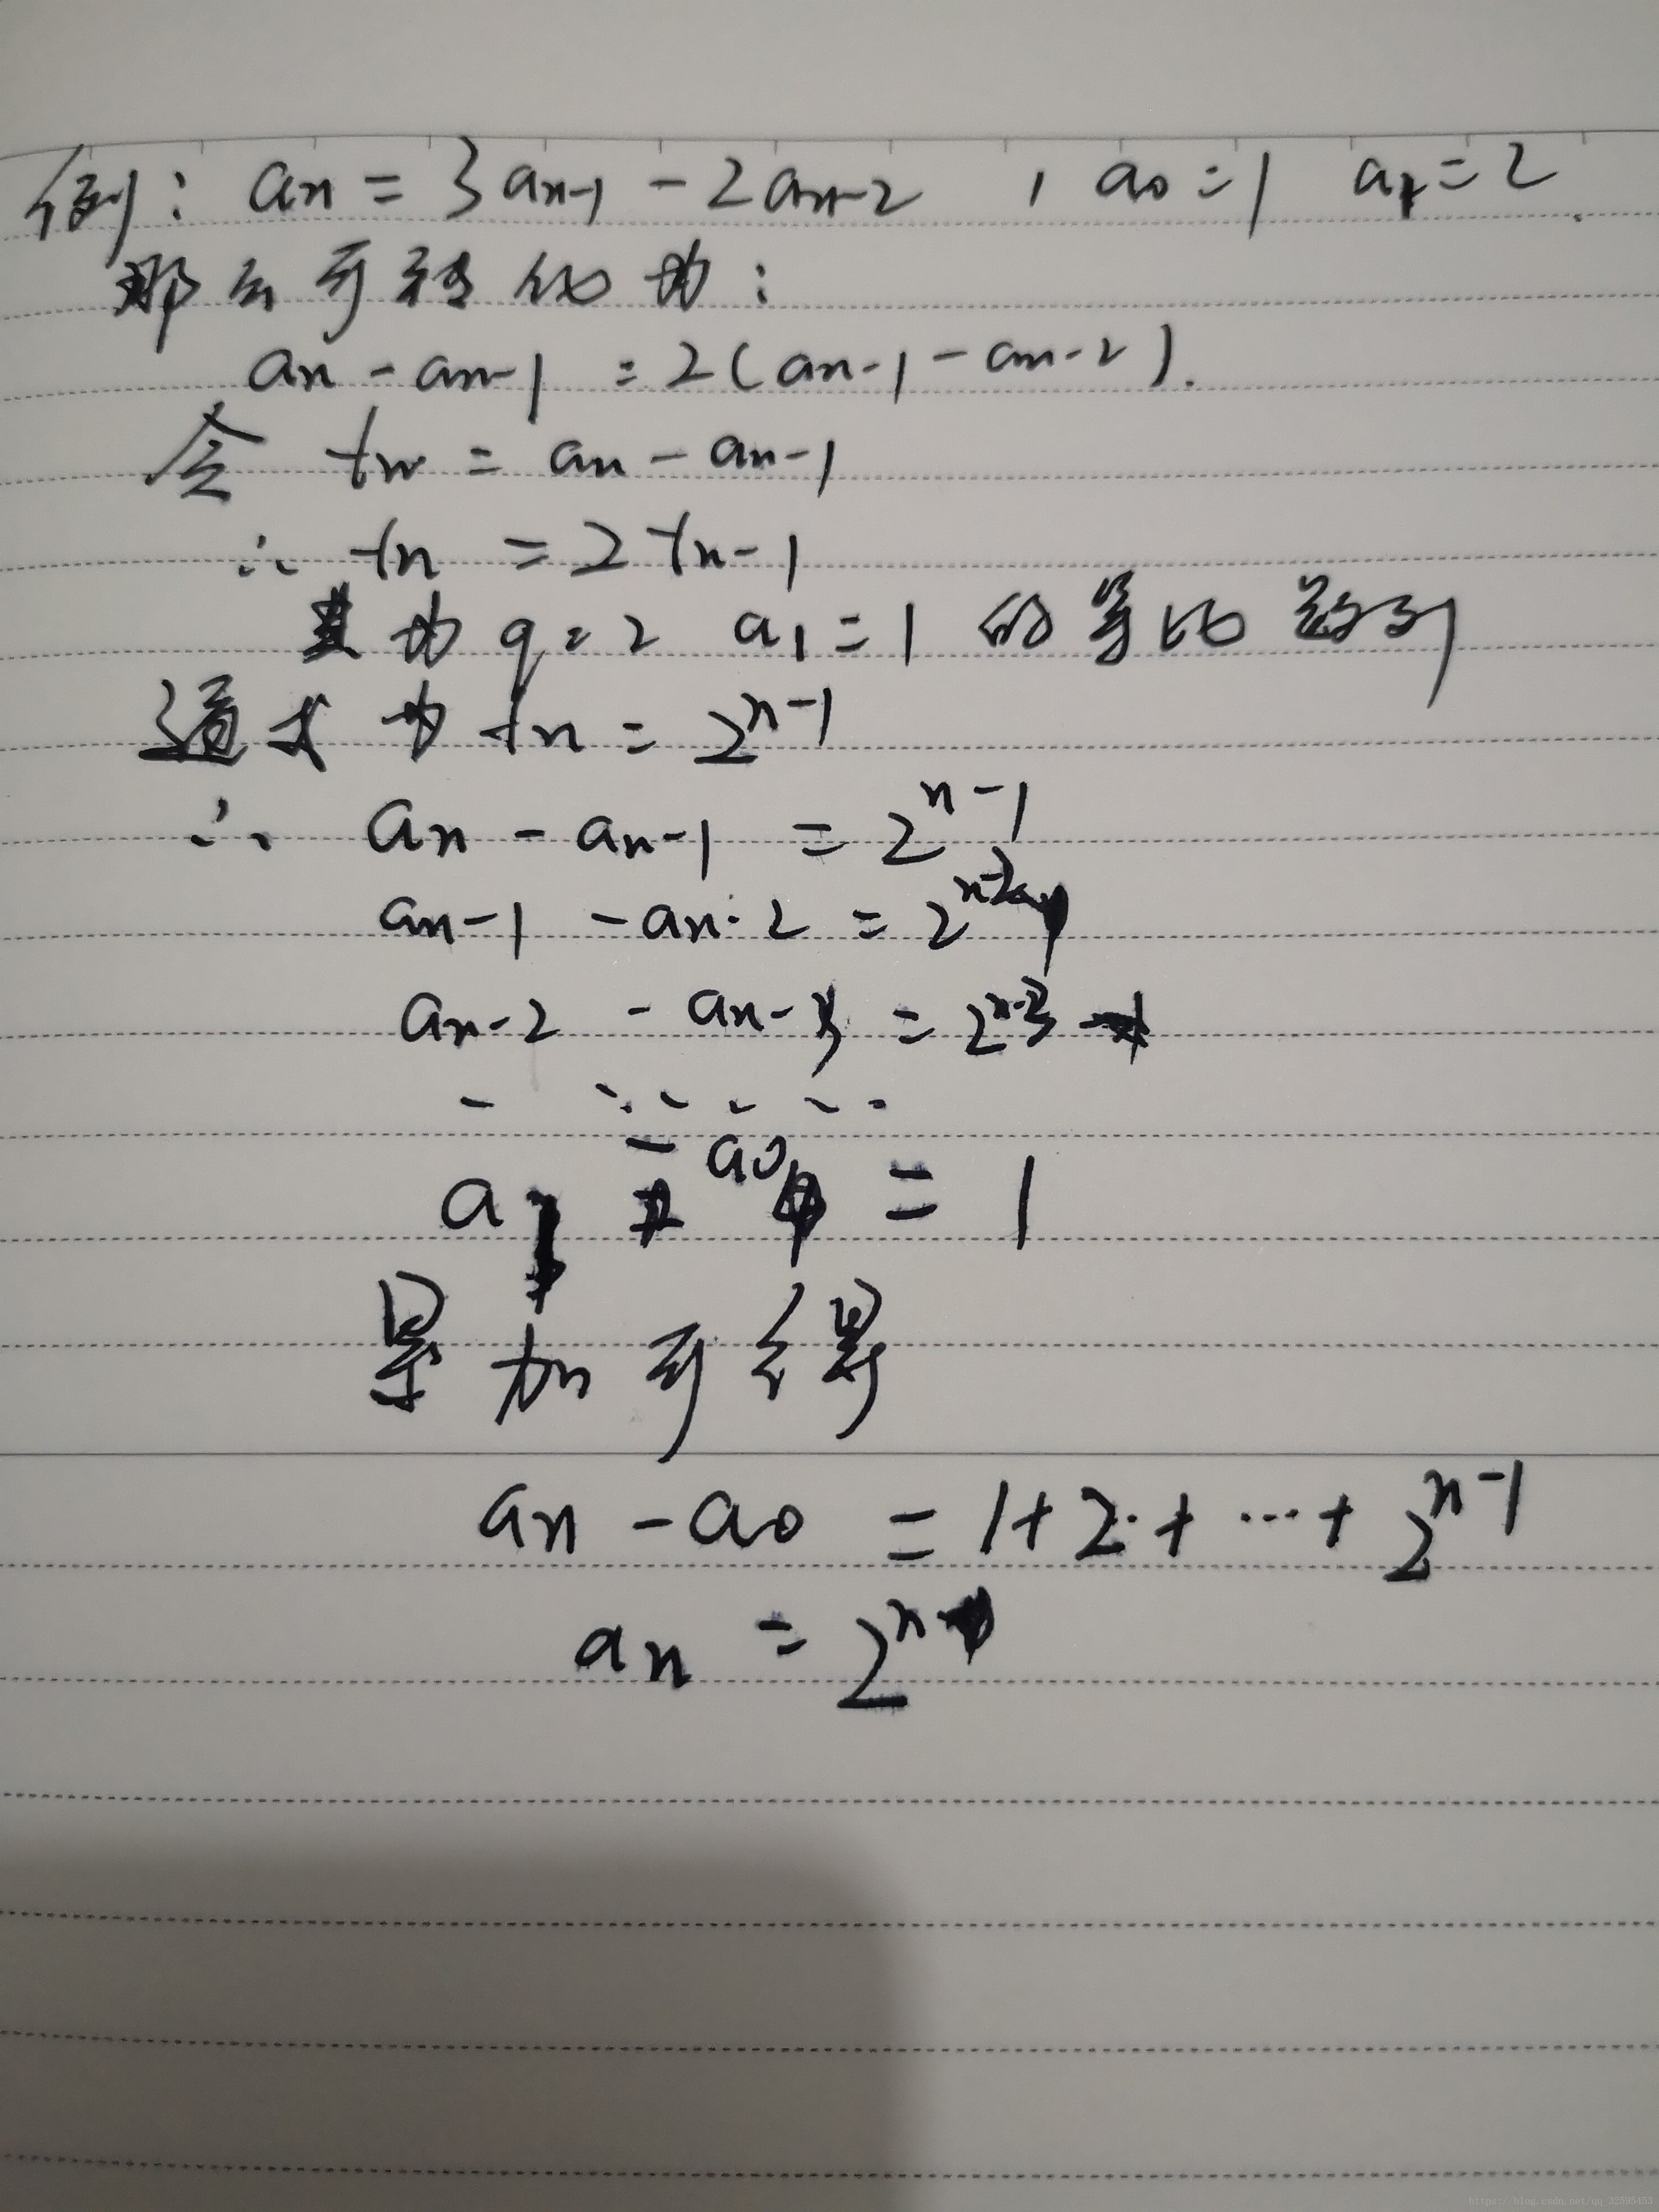 例: an = 3an-1 - 2an-2 , a0 = 1 a1 = 2.
那么可转化为:
an - an-1 = 2(an-1 - an-2).
令 tn = an - an-1
∴ tn = 2tn-1
为 q=2 a1=1 的等比数列
通式为 tn = 2^n-1
∴ an - an-1 = 2^n-1
an-1 - an-2 = 2^n-2
an-2 - an-3 = 2^n-3
- ......
a1 - a0 = 1
累加可得
an - a0 = 1+2+...+2^n-1
an = 2^n
https://blog.csdn.net/qq_32595453